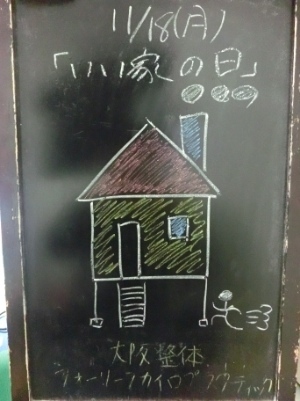 11/18(月)
「いい家の日」
大阪整体
シオーリーンカイロプラクティック